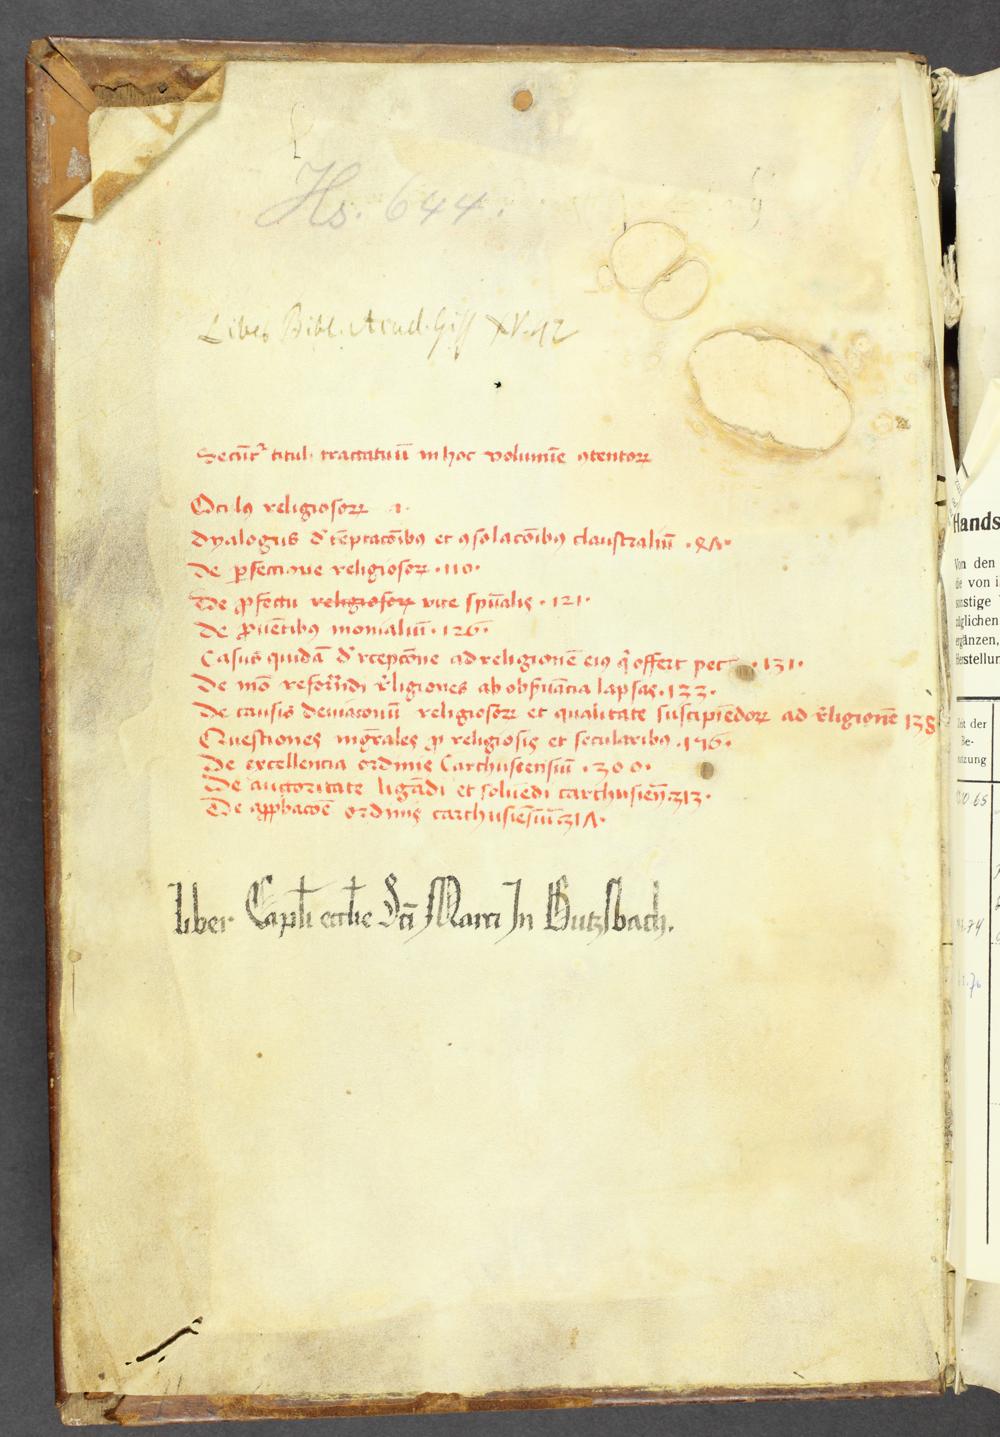 Hs. 644.
Liber Bibl. Acad. Giss XV. 42
Secūtr titul tractatuū in hoc volumīe ꝯtentoꝝ
Oculꝰ religiosoꝝ 1
Dyalogus d' tēptacōibꝰ et ꝯsolacōibꝰ claustraliū
De ꝑfectione religiosoꝝ · 110 ·
De ꝓfectu religiosoꝝ vite spūalis · 121 ·
De ꝓuētibꝰ monialiū · 126 ·
Casus quidā d' recepcōne ad religionē eiꝰ qͥ offert · 131 ·
De mō reform̄di religiones ab obs̄uācia lapsas · 133 ·
De causis deuiacionū religiosoꝝ et qualitate suscipiēdoꝝ ad religionē 138
Questiones mg̅rales ꝓ religiosis et secularibꝰ · 196 ·
De excellencia ordinis Carthusiensiū · 300 ·
De auctoritate ligādi et soluēdi carthusieñ · 313 ·
De aꝓbacōe ordinis carthusiēsiū · 317 ·
liber Capli eccłie Scī Marci In Butzbach.
Hands
Von den
die von i
sonstige
glichen
ergänzen,
Herstellun
der
Be-
nutzung